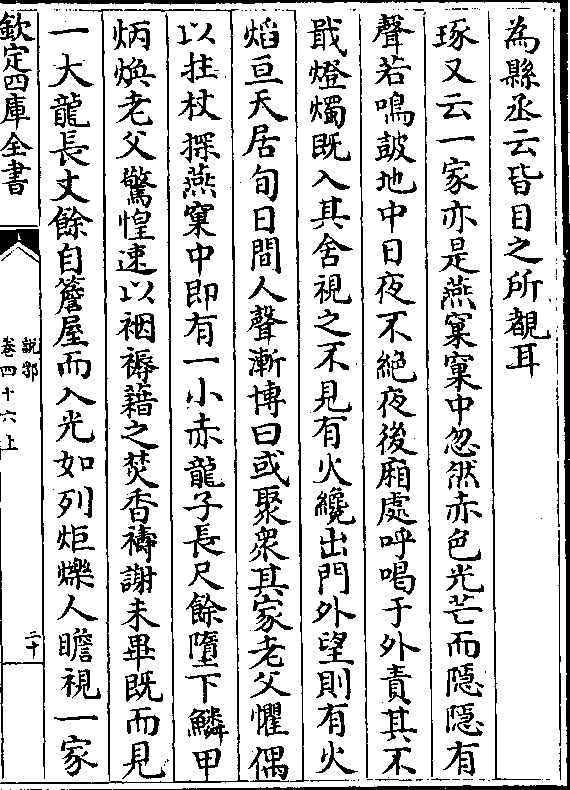 為縣丞云皆目之所覩耳
琢又云一家亦是燕窠窠中忽然赤色光芒而隱隱有
聲若鳴鼓地中日夜不絕夜後廂處呼喝于外責其不
戢燈燭既入其舍視之不見有火纔出門外望則有火
焰亘天居旬日間人聲漸博曰或聚衆其家老父懼偶
以拄杖探燕窠中即有一小赤龍子長尺餘墮下鱗甲
炳煥老父驚惶速以裀褥藉之焚香禱謝未畢既而見
一大龍長丈餘自簷屋而入光如列炬爍人瞻視一家
欽定四庫全書
說郛
卷四十六上
二十